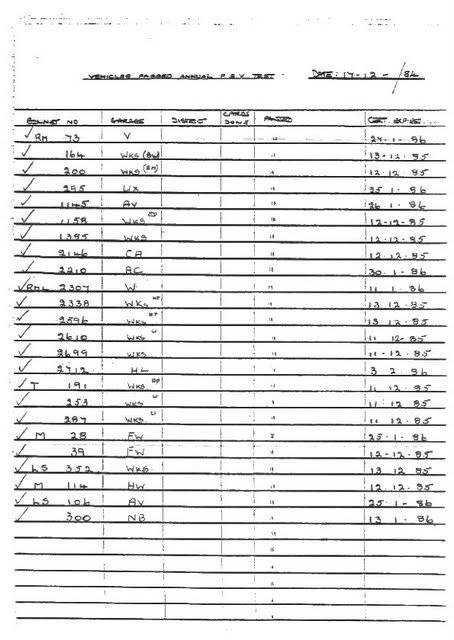 VEHICLES PASSED ANNUAL P.S.V. TEST DATE: 17-12-/84
BONNET NO GARAGE DISTRICT CARDS DONE PASSED CERT. EXPIRE
✓ RM 73 V " 27-1-86
✓ 164 WKS " 13-12-85
✓ 200 WKS " 12.12.85
✓ 295 UX " 25.1.86
✓ 1145 AV " 26.1.86
✓ 1158 WKS " 12-12-85
✓ 1385 WKS " 12.12.85
✓ 2146 CA " 12.12.85
✓ 2210 AC " 30.1.86
✓ RML 2307 W " 11.1.86
✓ 2338 WKS " 13.12.85
✓ 2596 WKS " 13.12.85
✓ 2610 WKS " 11.12-85
✓ 2699 WKS " 11-12-85
✓ 2712 HL " 3.2.86
✓ T 191 WKS " 11.12.85
✓ 253 WKS " 11.12.85
✓ 287 WKS " 11.12.85
✓ M 28 FW " 25.1.86
✓ 39 FW " 12-12-85
✓ LS 352 WKS " 13.12.85
✓ M 114 HW " 12.12.85
✓ LS 106 AV " 25.1-86
✓ 300 NB " 13.1.86